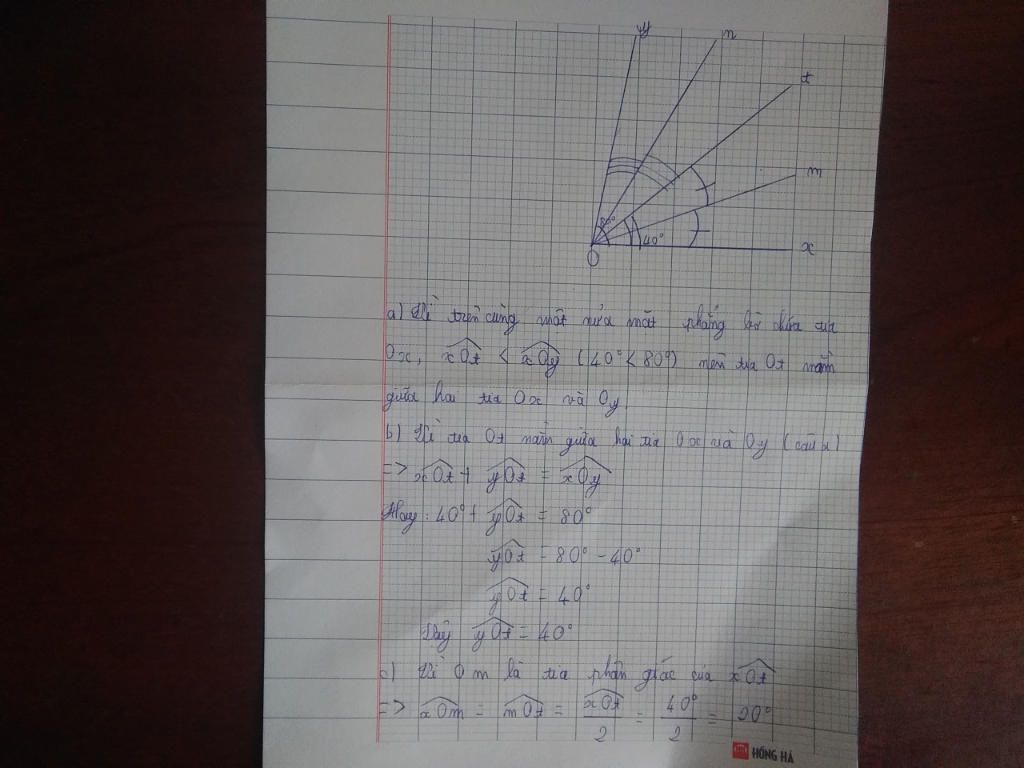 y n
t
m
80°
40°
x
O
a) Vì trên cùng một nửa mặt phẳng bờ chứa tia
Ox, xOt < xOy (40° < 80°) nên tia Ot nằm
giữa hai tia Ox và Oy
b) Vì tia Ot nằm giữa hai tia Ox và Oy (câu a)
=> xOt + yOt = xOy
Hay : 40° + yOt = 80°
yOt = 80° - 40°
yOt = 40°
Vậy yOt = 40°
c) Vì Om là tia phân giác của xOt
=> xOm = mOt = xOt/2 = 40°/2 = 20°
HỒNG HÀ